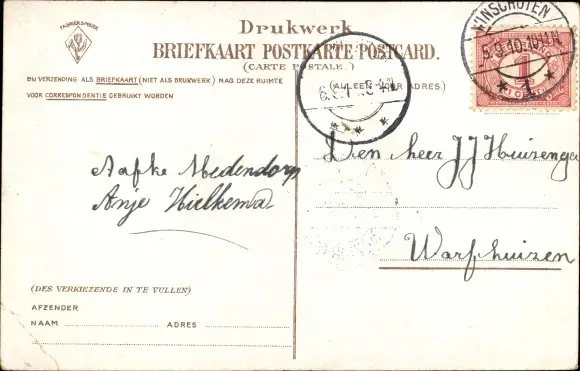 FABRIEKSMERK
Drukwerk
BRIEFKAART POSTKARTE POSTCARD.
(CARTE POSTALE.)
BIJ VERZENDING ALS BRIEFKAART (NIET ALS DRUKWERK) MAG DEZE RUIMTE
VOOR CORRESPONDENTIE GEBRUIKT WORDEN
(ALLEEN VOOR ADRES.)
WINSCHOTEN
5.9.10.10-11N
1
1
Aafke Medendorp
Anje Hielkema
Den heer JJ Huizenga
Warfhuizen
(DES VERKIEZENDE IN TE VULLEN)
AFZENDER
NAAM ADRES